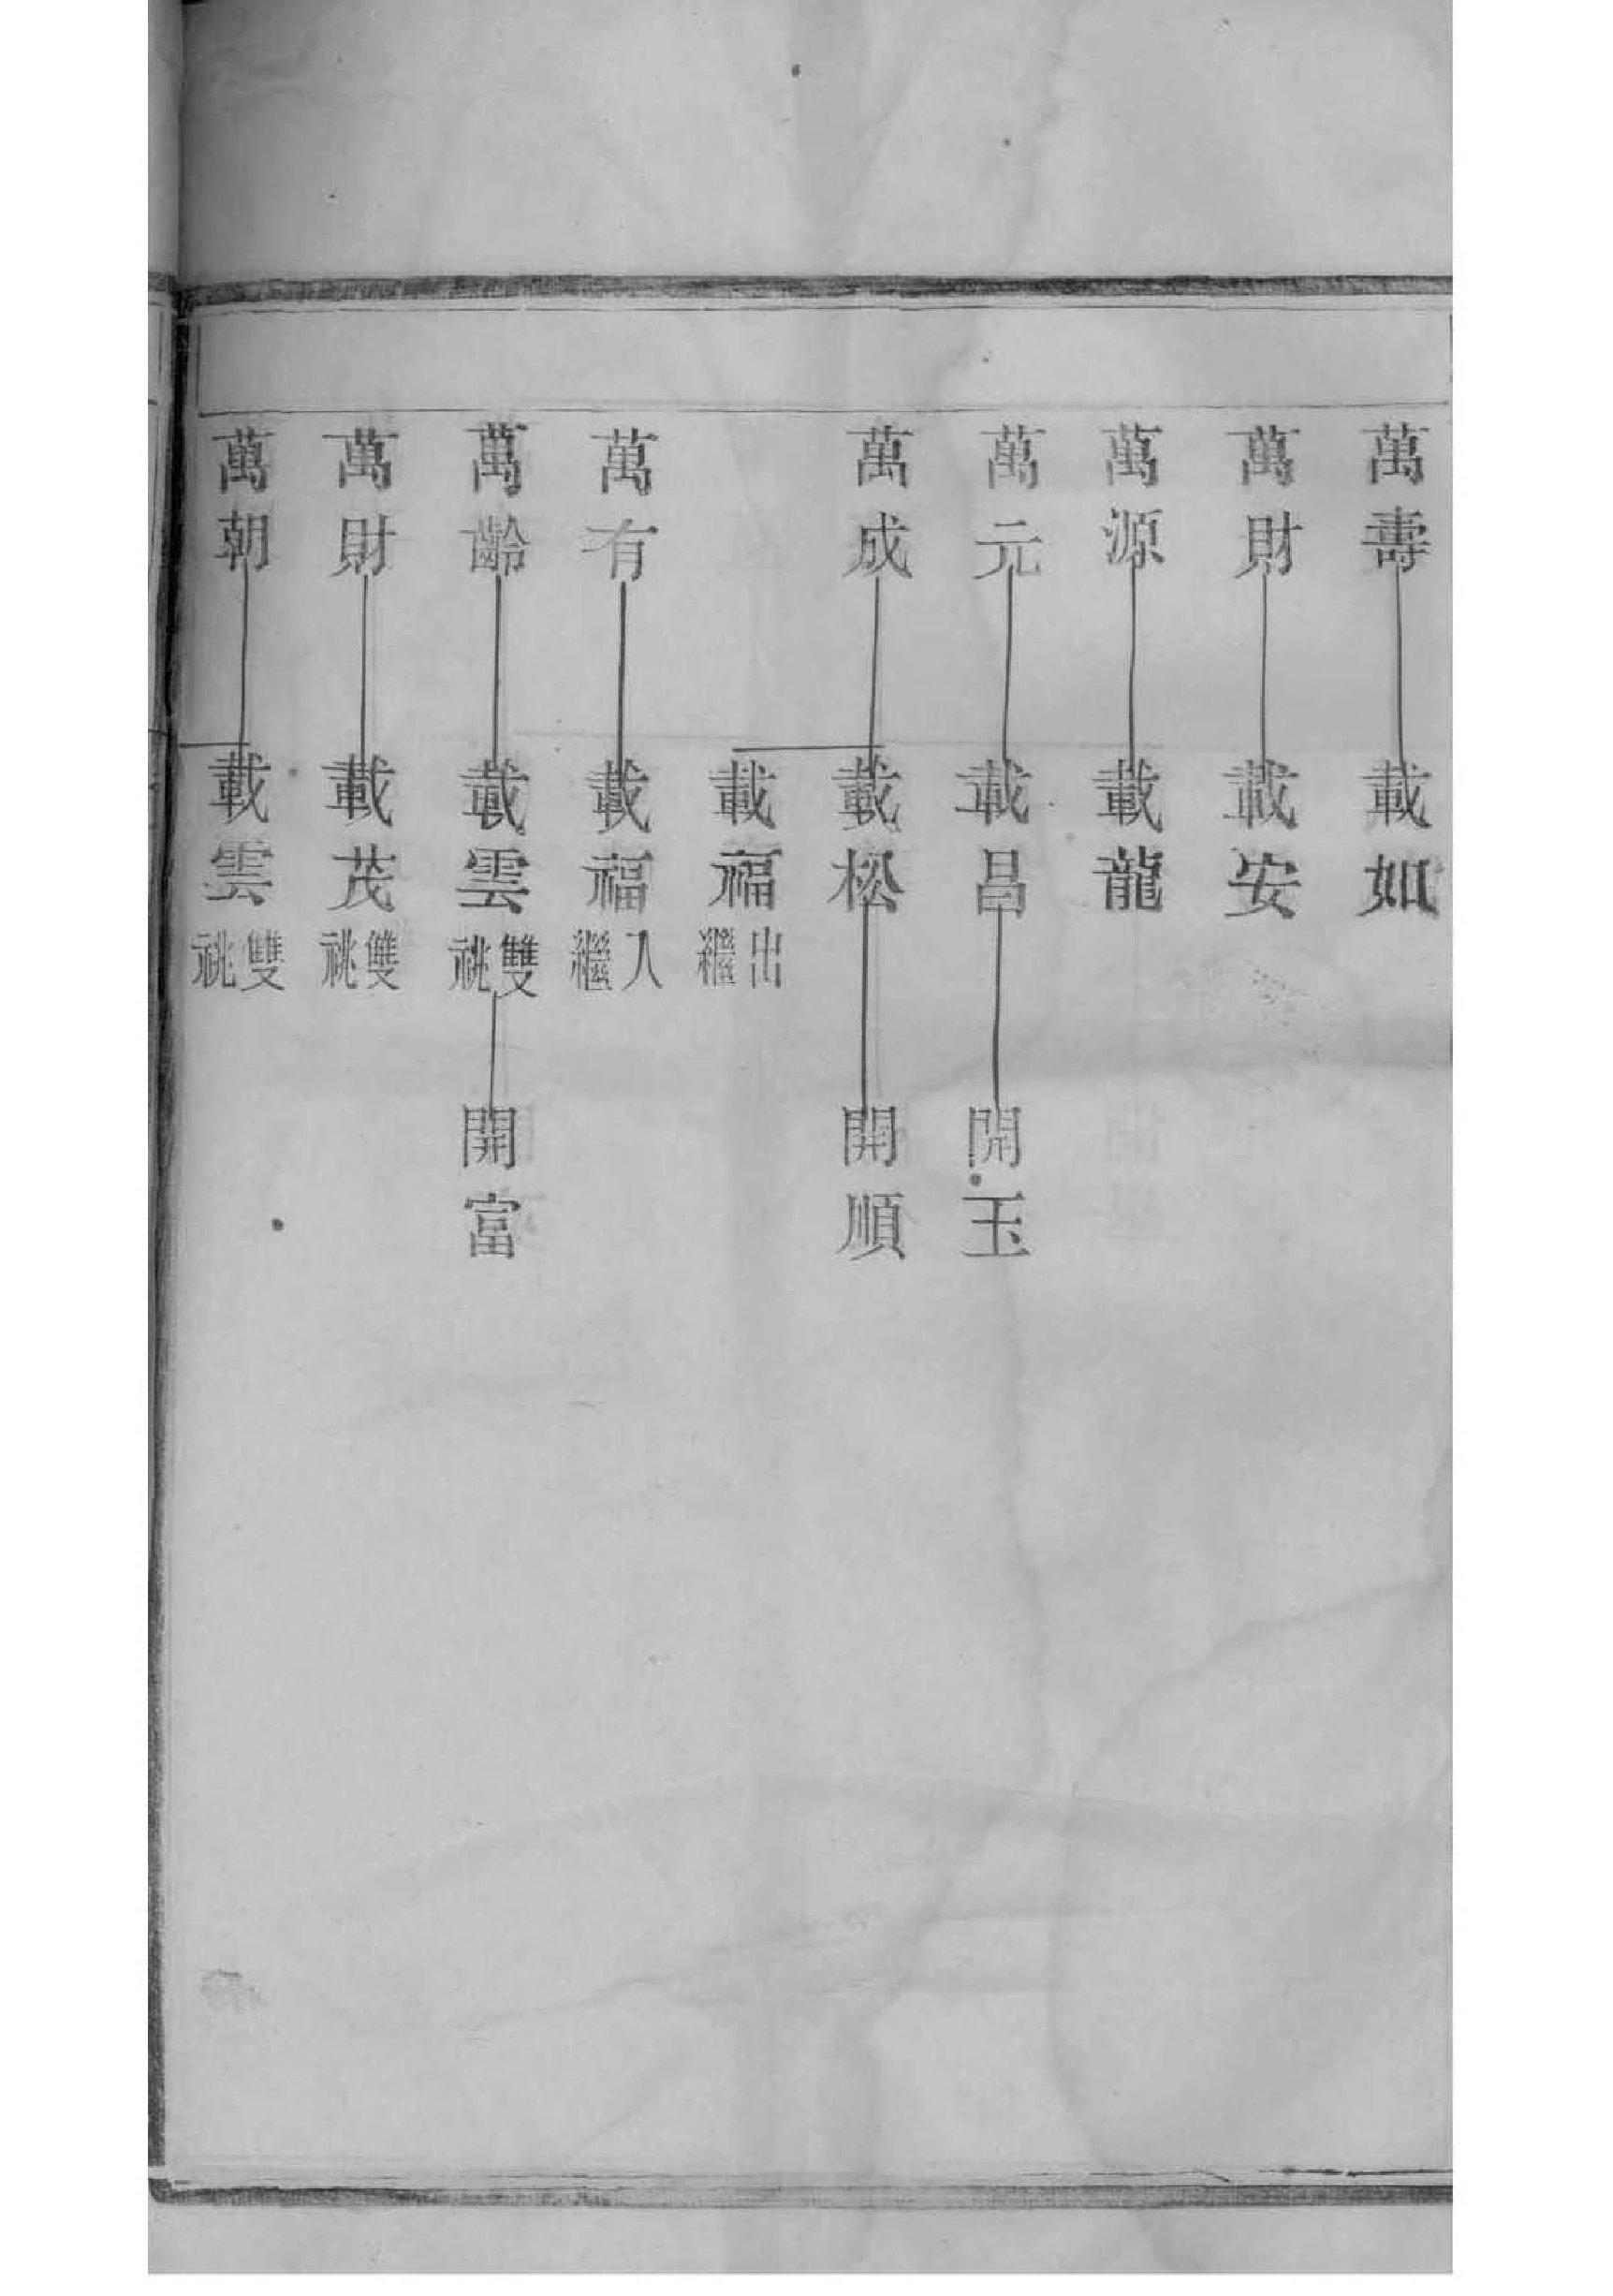 萬壽
載如
萬財
載安
萬源
載龍
萬元
載昌
開玉
萬成
載松
開順
載福
出繼
萬有
載福
入繼
萬齡
載雲
雙祧
開富
萬財
載茂
雙祧
萬朝
載雲
雙祧